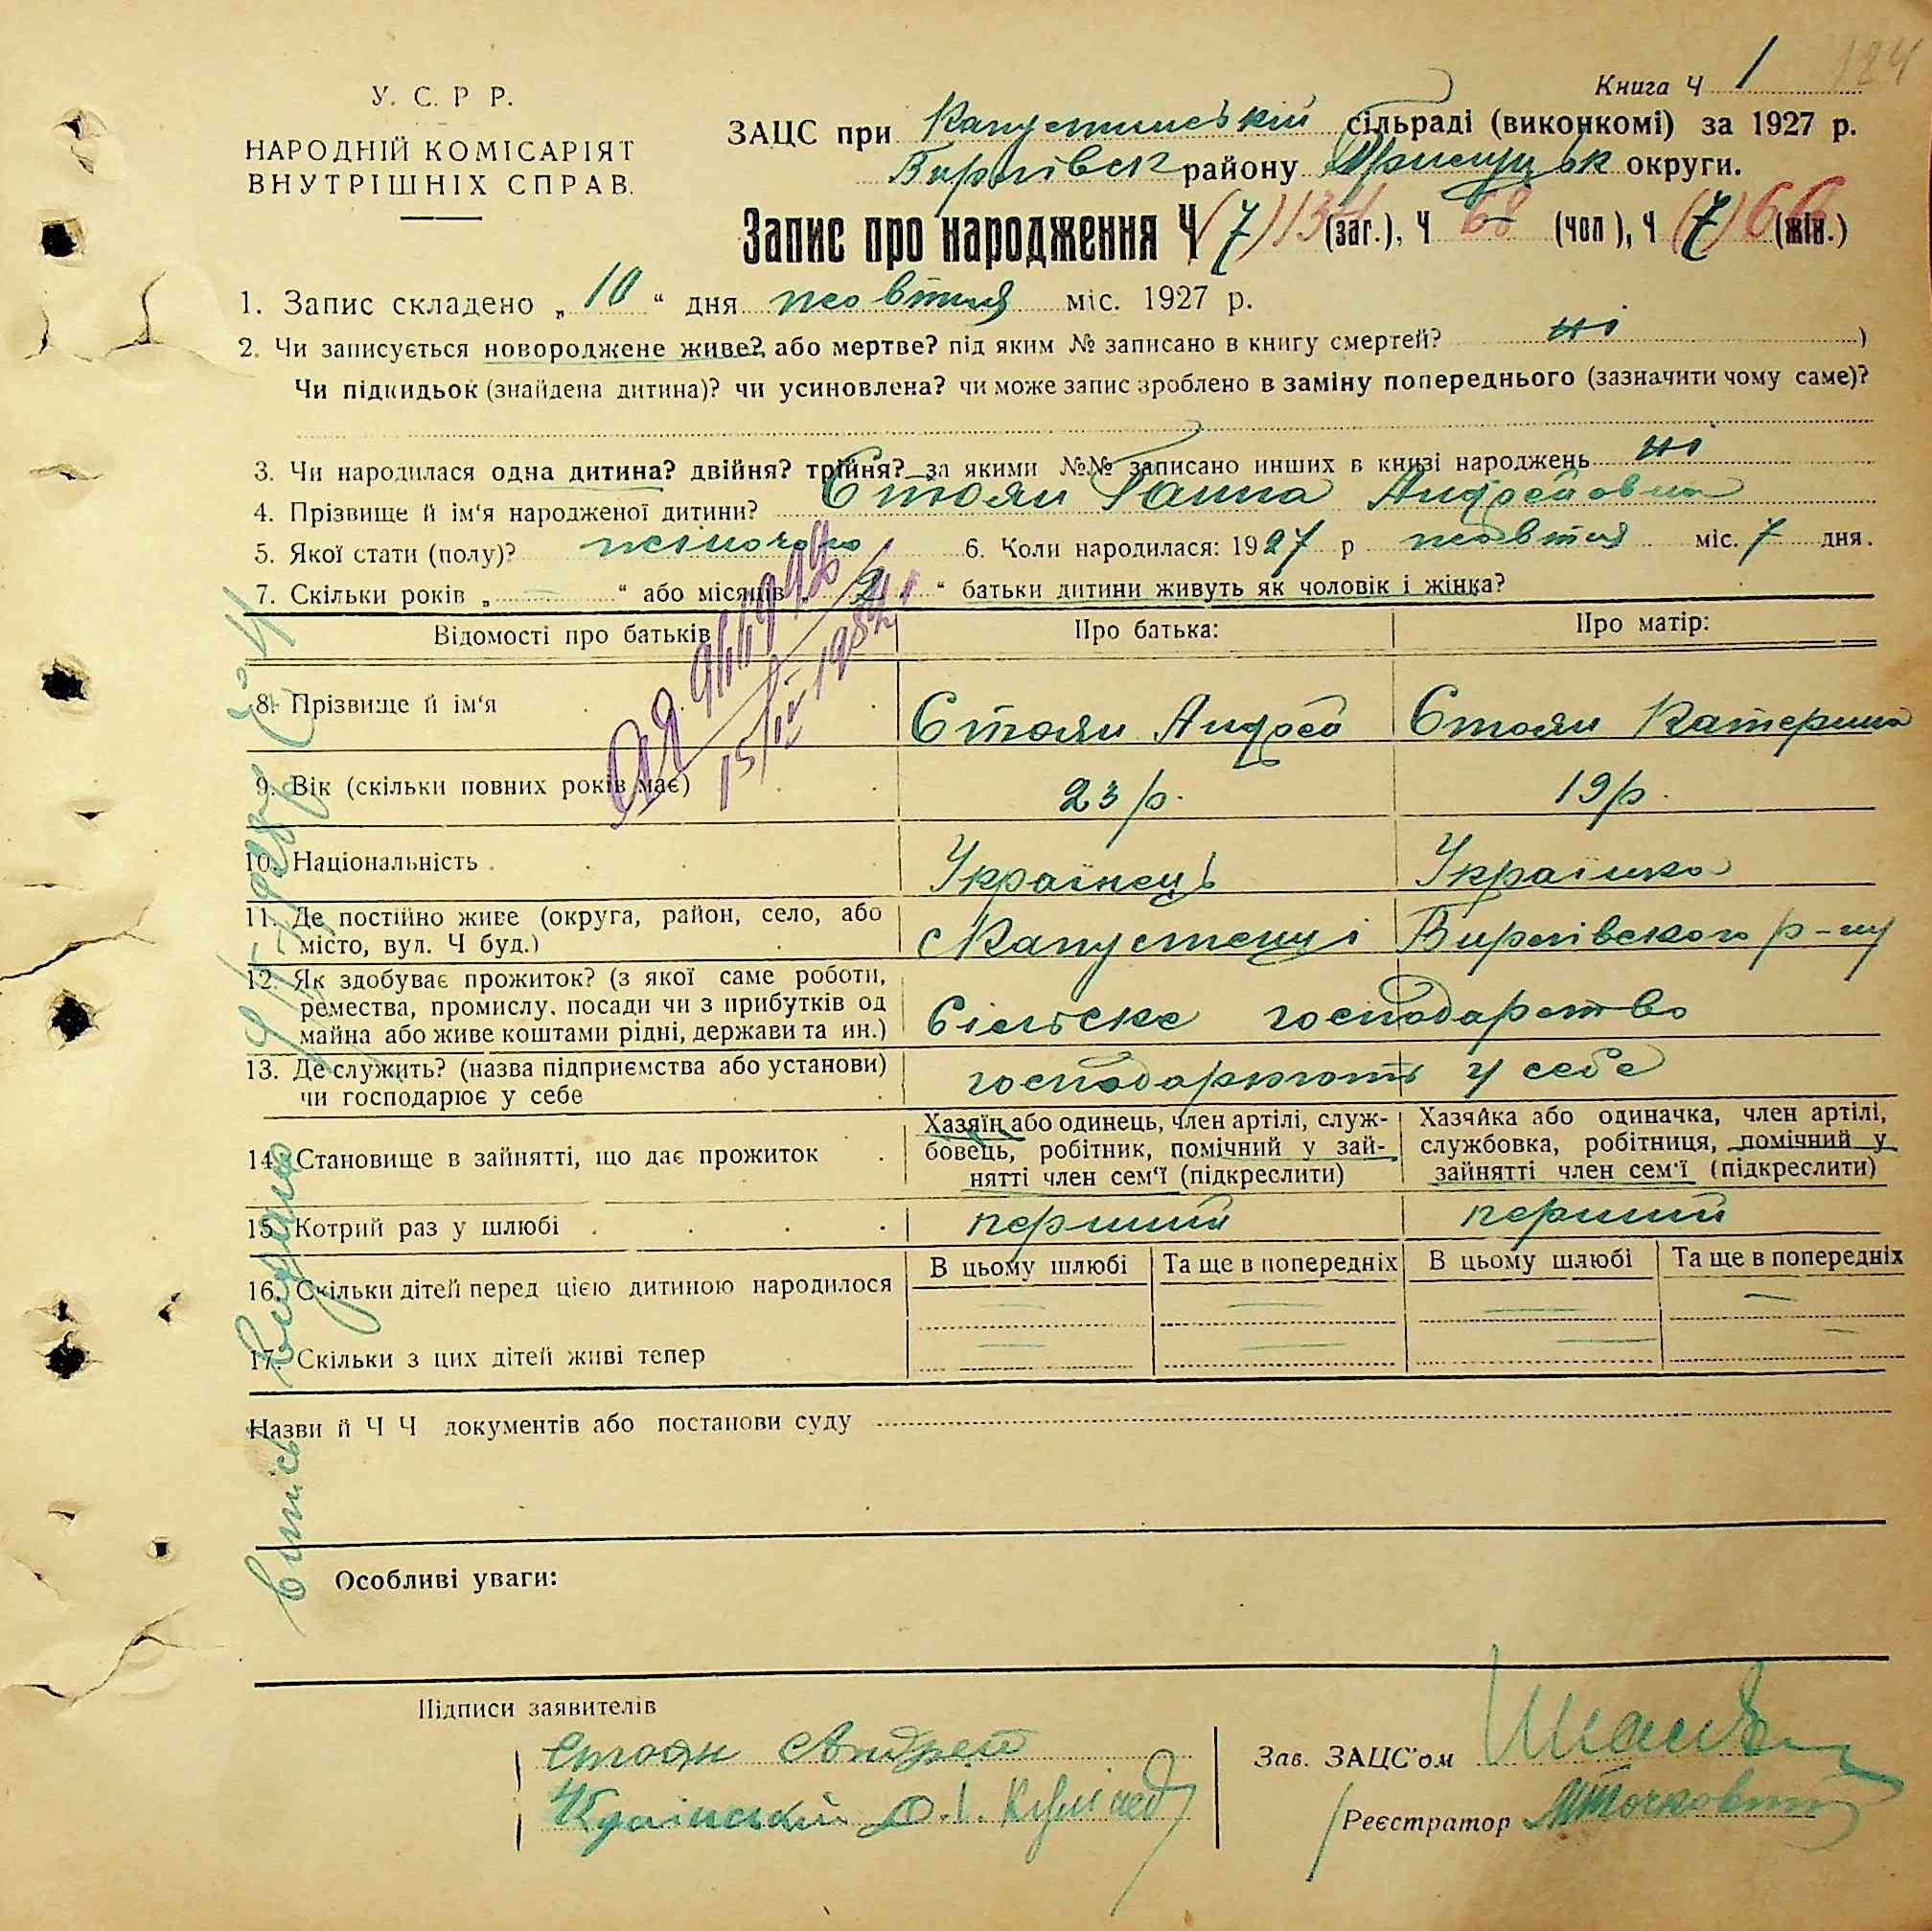 Книга Ч 1
184
У. С. Р Р.
НАРОДНІЙ КОМІСАРІЯТ
ВНУТРІШНІХ СПРАВ.
ЗАЦС при Капустинській сільраді (виконкомі) за 1927 р.
району округи.
Запис про народження Ч (7) 134 (заг.), Ч 68 (чол), Ч (7) 66 (жін.)
1. Запис складено „ 10 “ дня жовтня міс. 1927 р.
2. Чи записується новороджене живе? або мертве? під яким № записано в книгу смертей? ні )
Чи підкидьок (знайдена дитина)? чи усиновлена? чи може запис зроблено в заміну попереднього (зазначити чому саме)?
3. Чи народилася одна дитина? двійня? трійня? за якими №№ записано инших в книзі народжень ні
4. Прізвище й ім‘я народженої дитини? Стоян Ганна Андреовна
5. Якої стати (полу)? жіночого 6. Коли народилася: 1927 р жовтня міс. 7 дня.
7. Скільки років „ — “ або місяців „ 2 “ батьки дитини живуть як чоловік і жінка?
Відомості про батьків Про батька: Про матір:
8. Прізвище й ім‘я Стоян Андрей Стоян Катерина
9. Вік (скільки повних років має) 23 р. 19 р.
10. Національність Українець Українка
11. Де постійно живе (округа, район, село, або
місто, вул. Ч буд.) с Капустенці Вирівського р-ну
12. Як здобуває прожиток? (з якої саме роботи,
ремества, промислу, посади чи з прибутків од
майна або живе коштами рідні, держави та ин.) Сільске господарство
13. Де служить? (назва підприємства або установи)
чи господарює у себе господарюють у себе
14. Становище в зайнятті, що дає прожиток
Хазяїн або одинець, член артілі, служ-
бовець, робітник, помічний у зай-
нятті член сем‘ї (підкреслити)
Хазяйка або одиначка, член артілі,
службовка, робітниця, помічний у
зайнятті член сем‘ї (підкреслити)
15. Котрий раз у шлюбі перший перший
В цьому шлюбі Та ще в попередніх В цьому шлюбі Та ще в попередніх
16. Скільки дітей перед цією дитиною народилося — — — —
17. Скільки з цих дітей живі тепер — — — —
Назви й Ч Ч документів або постанови суду
Особливі уваги:
Підписи заявителів
Стоян Андрей
Зав. ЗАЦС‘ом
Реєстратор
Витпісь видано